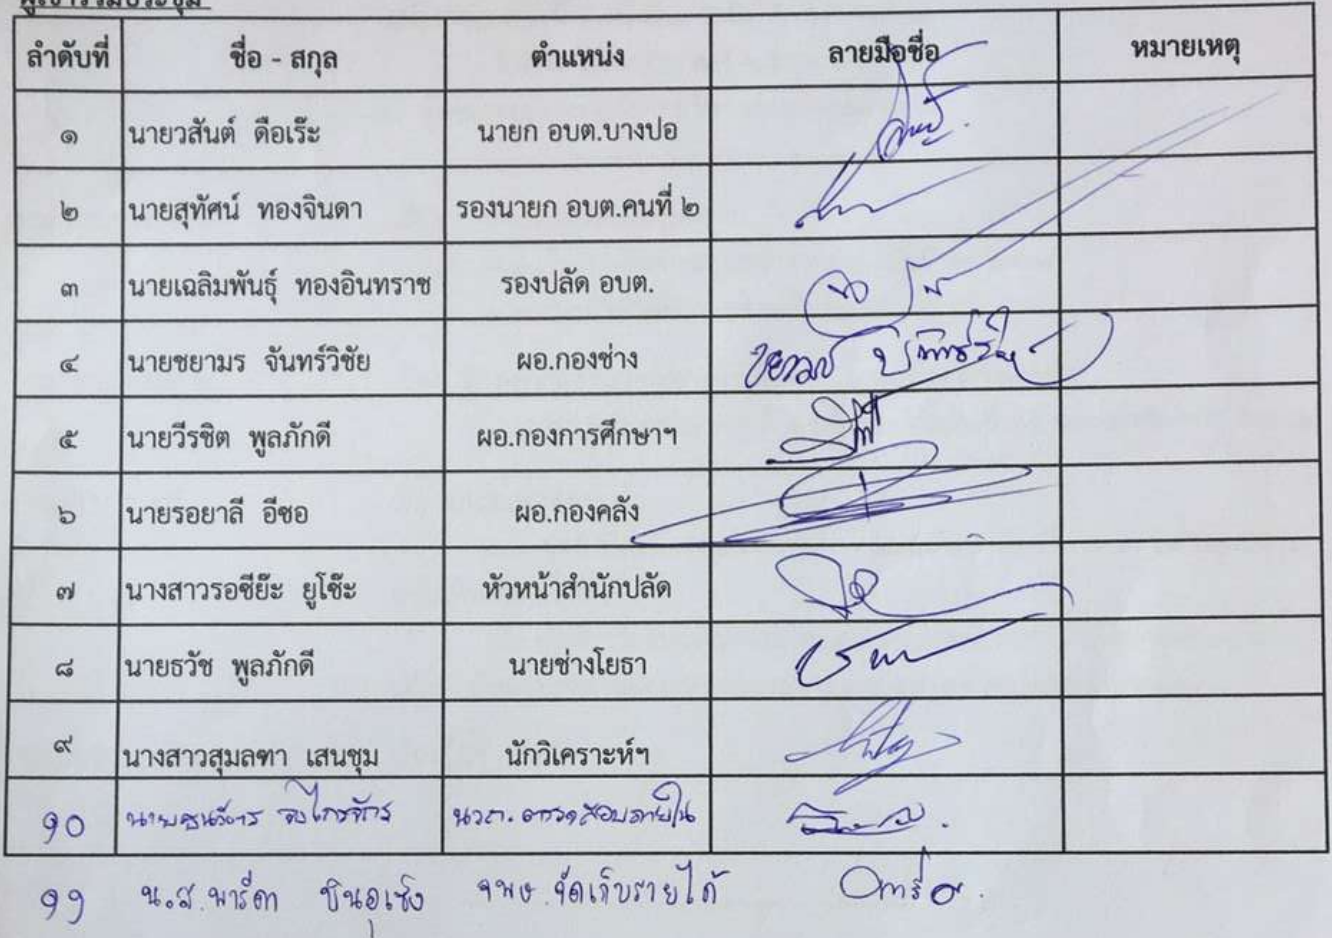 ผู้เข้าร่วมประชุม
ลำดับที่ ชื่อ - สกุล ตำแหน่ง ลายมือชื่อ หมายเหตุ
๑ นายวสันต์ ดือเร๊ะ นายก อบต.บางปอ
๒ นายสุทัศน์ ทองจินดา รองนายก อบต.คนที่ ๒
๓ นายเฉลิมพันธุ์ ทองอินทราช รองปลัด อบต.
๔ นายชยามร จันทร์วิชัย ผอ.กองช่าง
๕ นายวีรชิต พูลภักดี ผอ.กองการศึกษาฯ
๖ นายรอยาลี อีซอ ผอ.กองคลัง
๗ นางสาวรอซีย๊ะ ยูโซ๊ะ หัวหน้าสำนักปลัด
๘ นายธวัช พูลภักดี นายช่างโยธา
๙ นางสาวสุมลฑา เสนชุม นักวิเคราะห์ฯ
๑๐ นวก. ตรวจสอบภายใน
๑๑ น.ส. พารีดา จพง. จัดเก็บรายได้